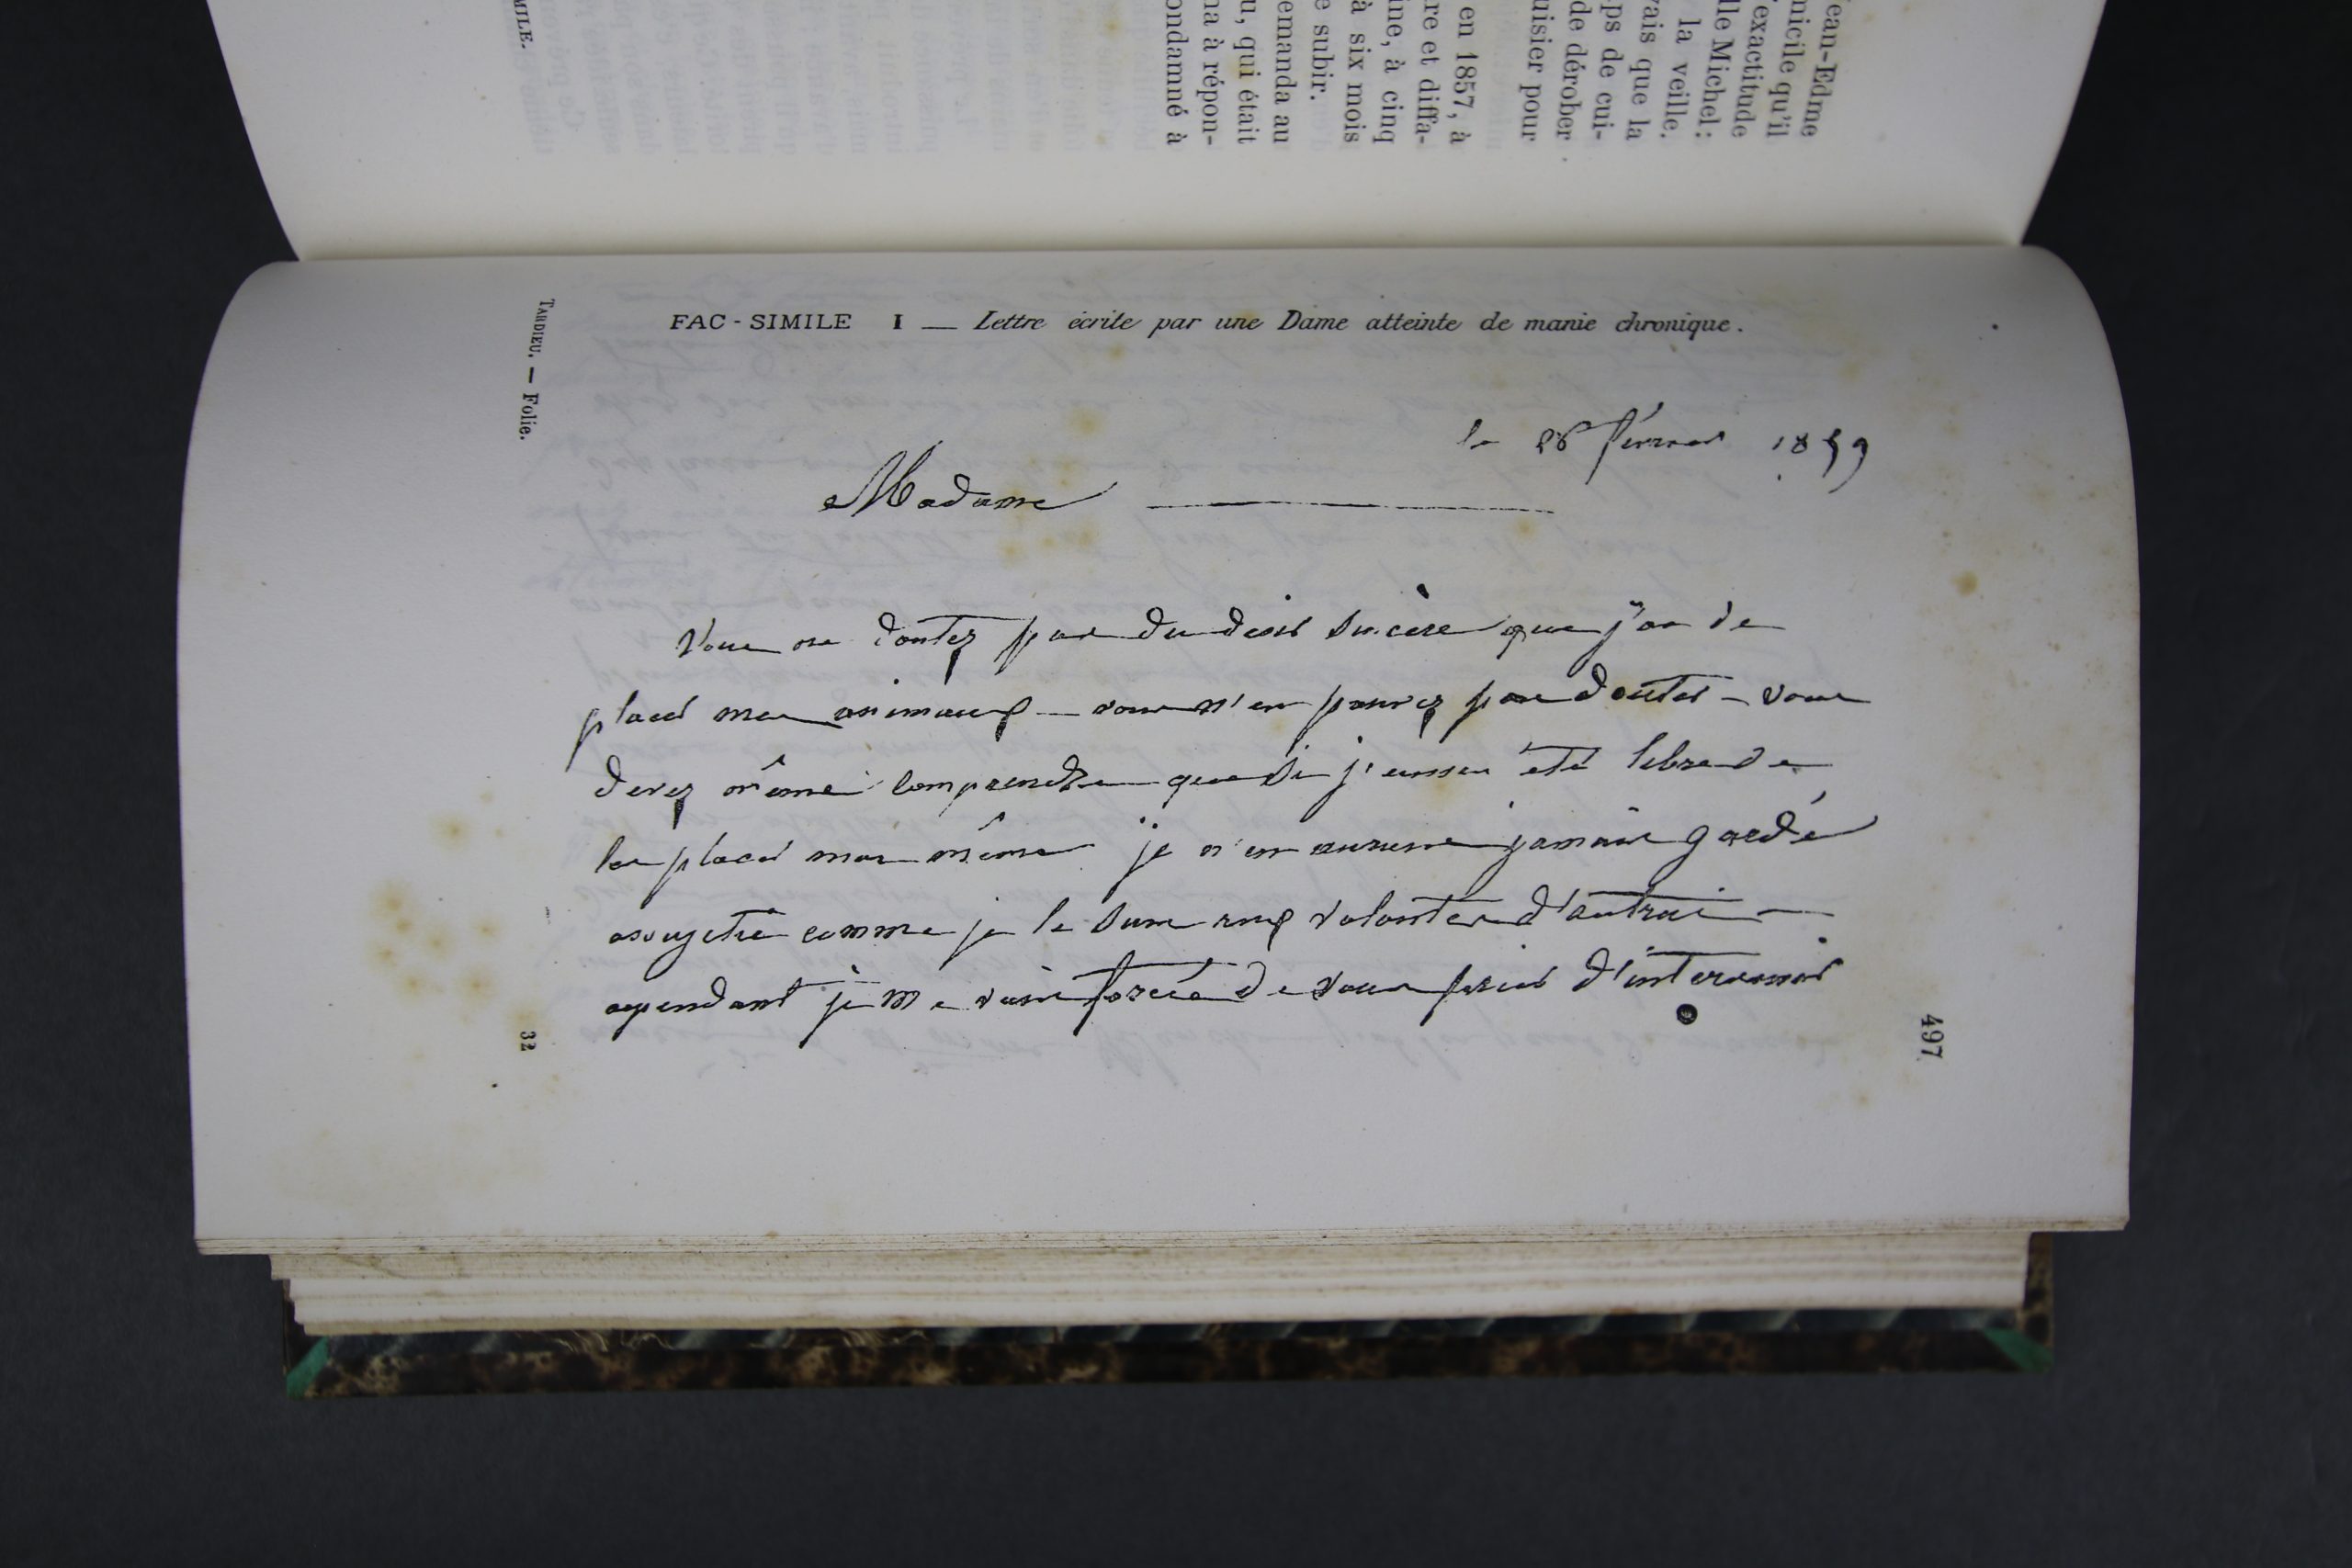 Jean-Edme
micile qu'il
exactitude
lle Michel :
la veille.
vais que la
ps de cui-
de dérober
uisier pour
en 1857, à
re et diffa-
ine, à cinq
à six mois
e subir.
emanda au
u, qui était
na à répon-
ondamné à
MILE.
FAC-SIMILE I — Lettre écrite par une Dame atteinte de manie chronique.
le 26 février 1859
Madame
Vous ne doutez pas du désir sincère que j'ai de
placer mes animaux — vous n'en pouvez pas douter — vous
devez même comprendre que si j'eusse été libre de
les placer moi même je n'en aurais jamais gardé
assujettie comme je le suis aux volontés d'autrui —
cependant je me vois forcée de vous prier d'intervenir
TARDIEU. — Folie.
32
497